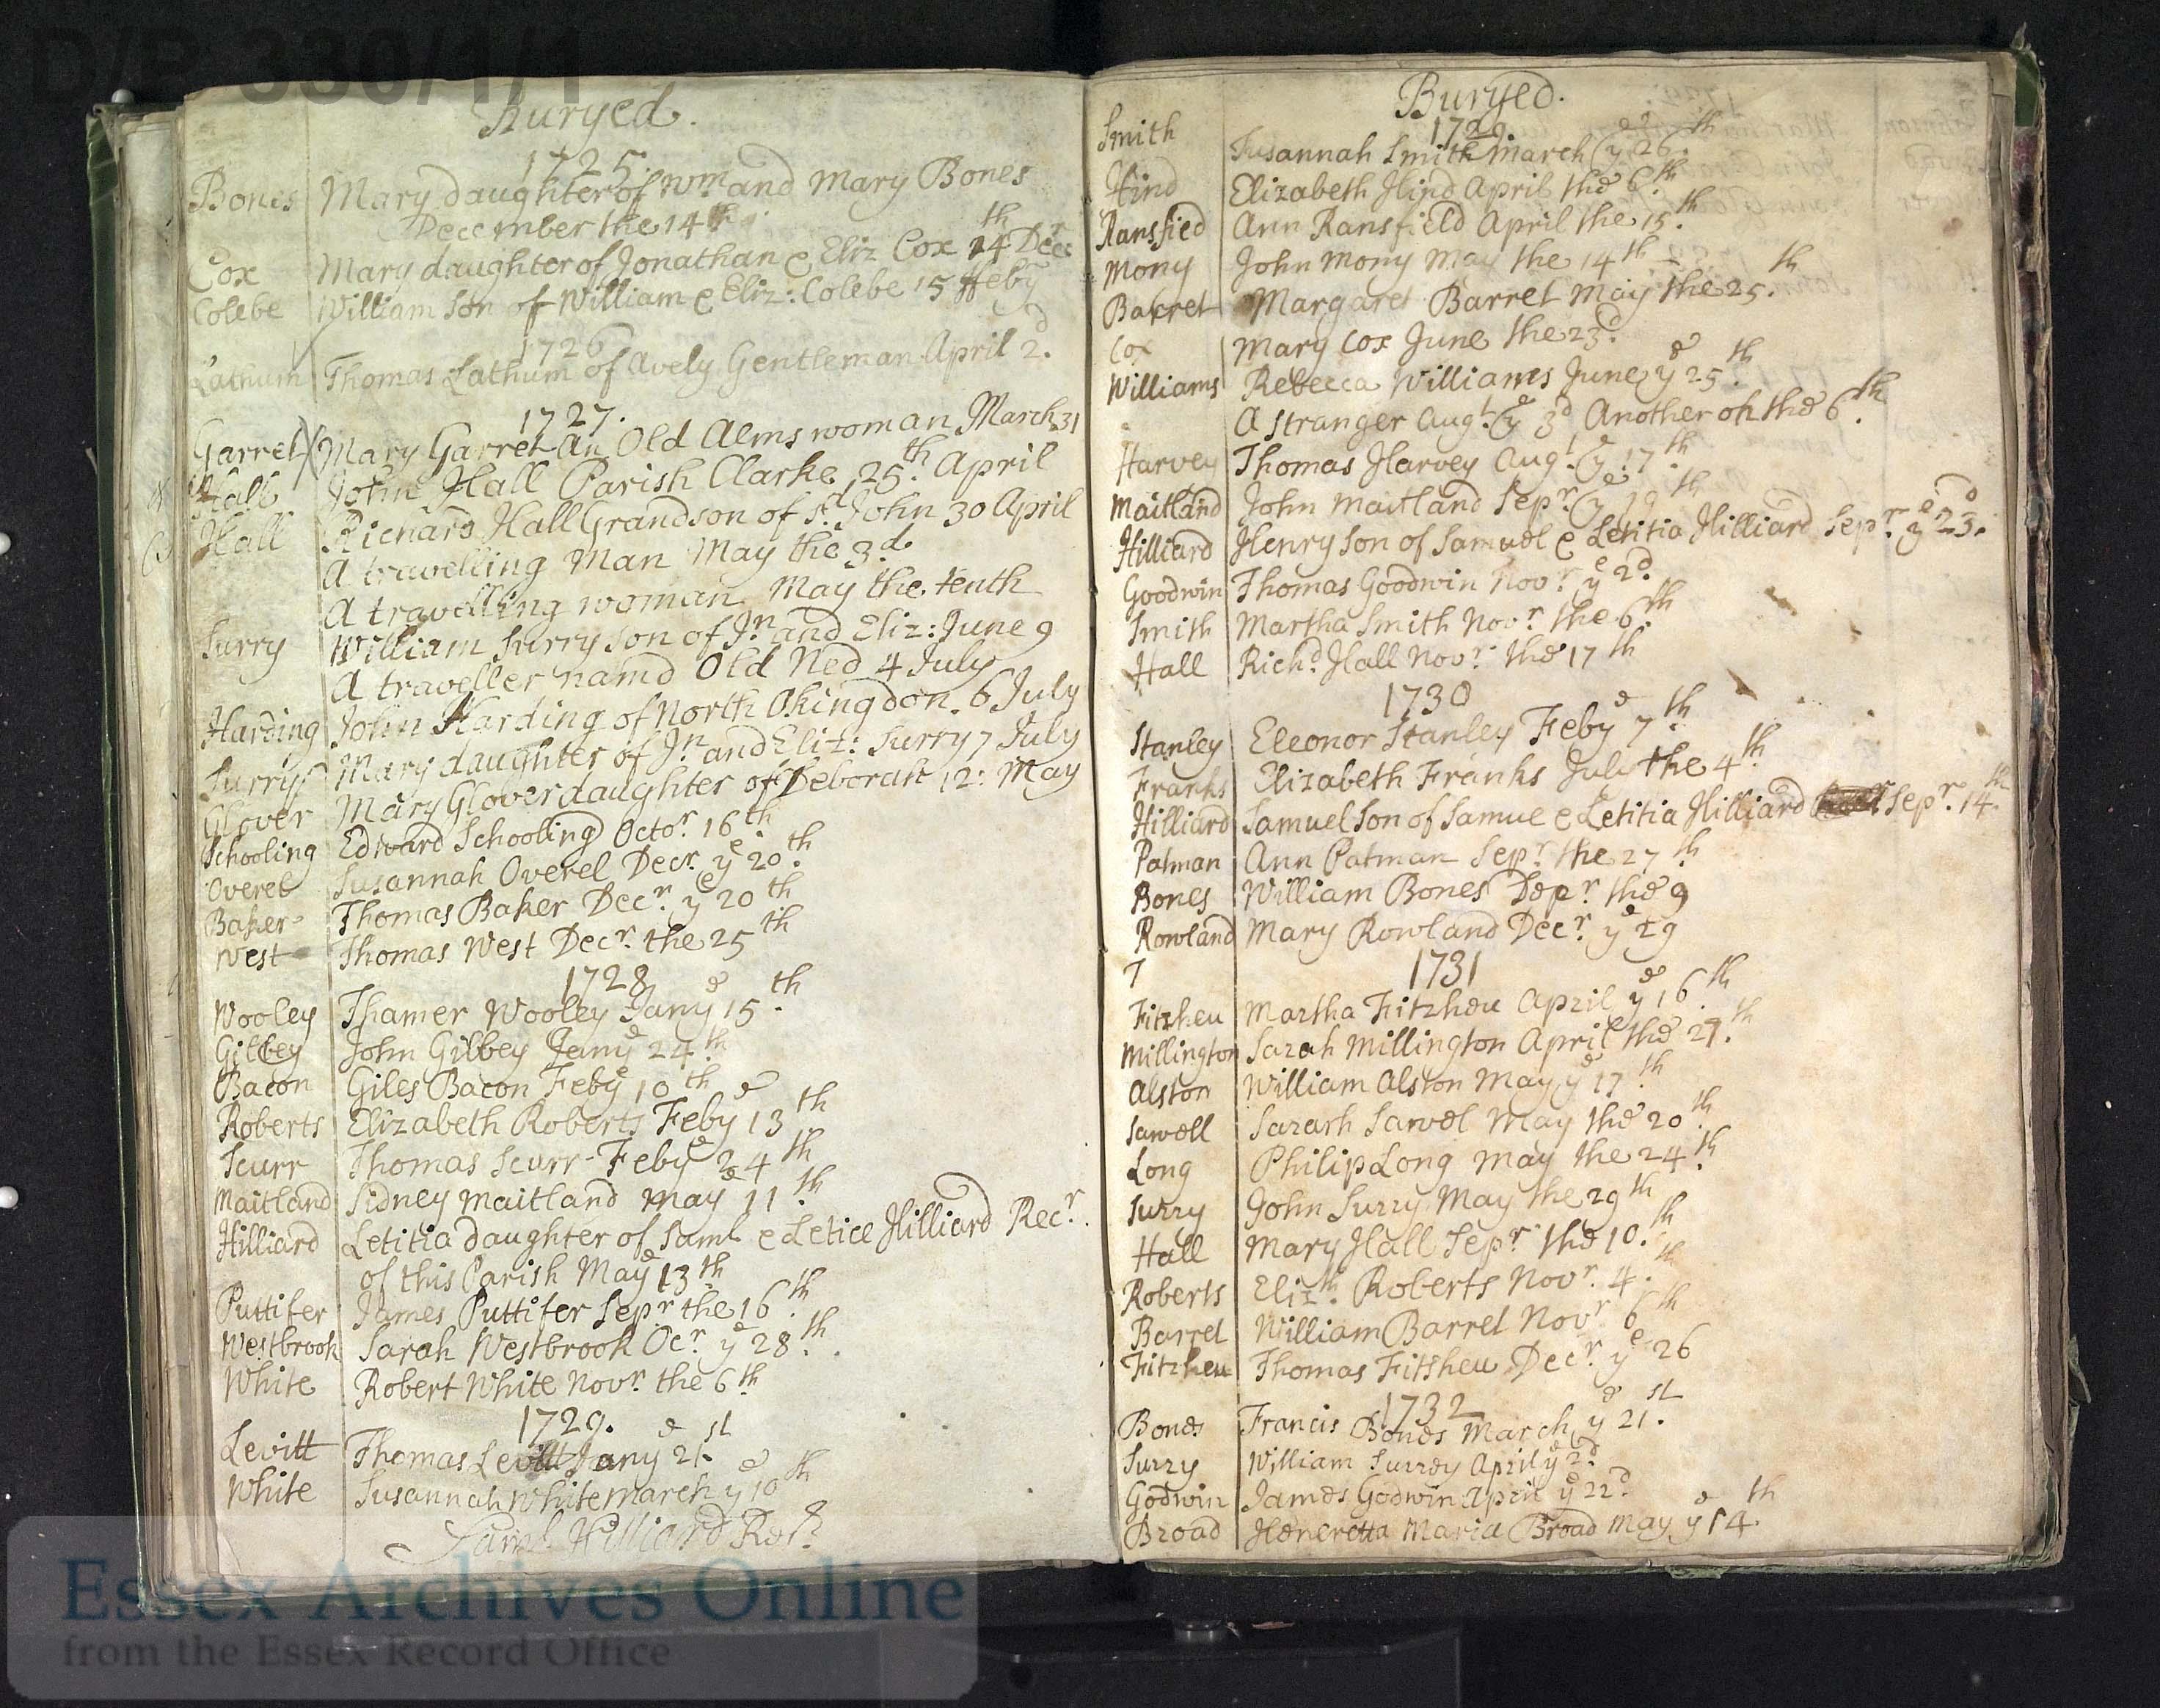 D/P 330/1/1
Buryed.
1725
Bones Mary daughter of Wm and Mary Bones
December the 14th
Cox Mary daughter of Jonathan & Eliz Cox 14th Decr
Colebe William Son of William & Eliz: Colebe 15 ffeby
1726
Lathum Thomas Lathum of Avely Gentleman April 2d.
1727.
Garret Mary Garret An Old Alms woman March 31
Hall John Hall Parish Clarke 25th. April
Hall Richard Hall Grandson of sd. John 30 April
A travelling Man May the 3d.
A travelling woman May the tenth
Surry William Surry son of Jn. and Eliz: June 9
A traveller namd Old Ned 4 July
Harding John Harding of North Okingdon. 6 July
Surry Mary daughter of Jn. and Eliz: Surry 7 July
Glover Mary Glover daughter of Deborah 12: May
Schooling Edward Schooling Octor. 16th.
Overel Susannah Overel Decr. ye 20th.
Baker Thomas Baker Decr. ye 20th
West Thomas West Decr. the 25th
1728
Wooley Thamer Wooley Jany ye 15th.
Gilbey John Gilbey Jany ye 24th.
Bacon Giles Bacon Feby ye 10th
Roberts Elizabeth Roberts Feby ye 13th
Scurr Thomas Scurr Feby ye 24th
Maitland Sidney Maitland May ye 11th.
Hilliard Letitia daughter of Saml & Letice Hilliard Recr.
of this Parish May ye 13th.
Puttifer James Puttifer Sepr the 16th.
Westbrook Sarah Westbrook Ocr. ye 28th.
White Robert White Novr. the 6th.
1729.
Levitt Thomas Levitt Jany ye 21st.
White Susannah White March ye 10th
Saml. Hilliard Rectr.
Buryed.
1729
Smith Susannah Smith March ye 26th.
Hind Elizabeth Hind April the 6th.
Ransfied Ann Ransfield April the 15th.
Mony John Mony May the 14th
Barret Margaret Barret May the 25th.
Cox Mary Cox June the 23d.
Williams Rebecca Williams June ye 25th.
A Stranger Augt. ye 3d Another on the 6th.
Harvey Thomas Harvey Augt. ye 17th.
Maitland John Maitland Sepr. ye 19th
Hilliard Henry Son of Samuel & Letitia Hilliard Sepr. ye 23d.
Goodwin Thomas Goodwin Novr. ye 2d.
Smith Martha Smith Novr. the 6th.
Hall Richd. Hall Novr. the 17th
1730
Stanley Eleonor Stanley Feby ye 7th.
Franks Elizabeth Franks July the 4th.
Hilliard Samuel Son of Samue & Letitia Hilliard Sepr. 14th.
Patman Ann Patman Sepr. the 27th
Bones William Bones Sepr the 9
Rowland Mary Rowland Decr. ye 29
1731
Fitzheu Martha Fitzheu April ye 16th.
Millington Sarah Millington April the 27th.
Alston William Alston May ye 17th
Sawell Sararh Sawel May the 20th.
Long Philip Long May the 24th.
Surry John Surry May the 29th
Hall Mary Hall Sepr. the 10th.
Roberts Elizth. Roberts Novr. 4th.
Barret William Barret Novr 6th
Fitzheu Thomas Fitsheu Decr. ye 26
1732
Bones Francis Bones March ye 21st.
Surry William Surrey April ye 2d
Godwin James Godwin April ye 22d
Broad Heneretta Maria Broad May ye 14th.
Essex Archives Online
from the Essex Record Office